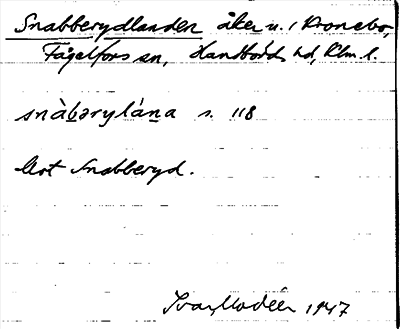 Snabberydlanden åker u. Kronebo,
Fågelfors sn, Handbörds hd, Klm l.
snàbərylána s. 118
Mot Snabberyd.
Ivar Modéer 1947